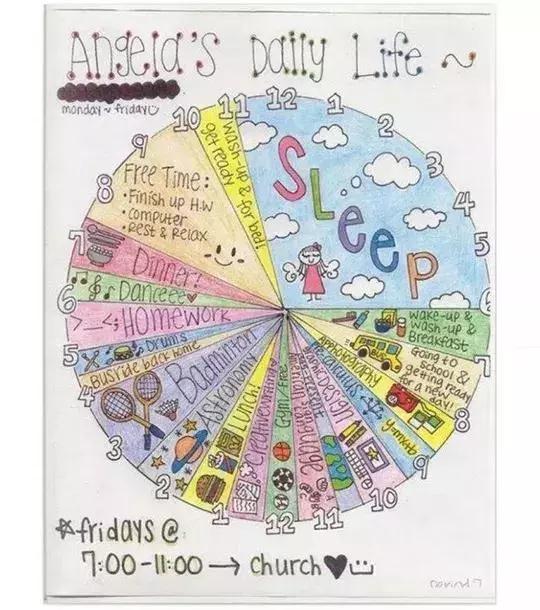 Angela's Daily Life ~
monday ~ friday
12
1
2
3
4
5
6
7
8
9
10
11
12
1
2
3
4
5
6
7
8
9
10
11
SLeep
wake-up &
wash-up &
Breakfast
BUS
Going to
school &
getting ready
for a new
day!
photography
DESIGN
American sign language
Gym/Free
Creative writing
Lunch!
Astronomy
Badminton
Busride back home
Drums
>_<; HOMEWORK
Danceee
Dinner!
Free Time:
• Finish up H.W
• computer
• Rest & Relax
wash-up &
get ready
for bed!
*fridays @
7:00-11:00 → church